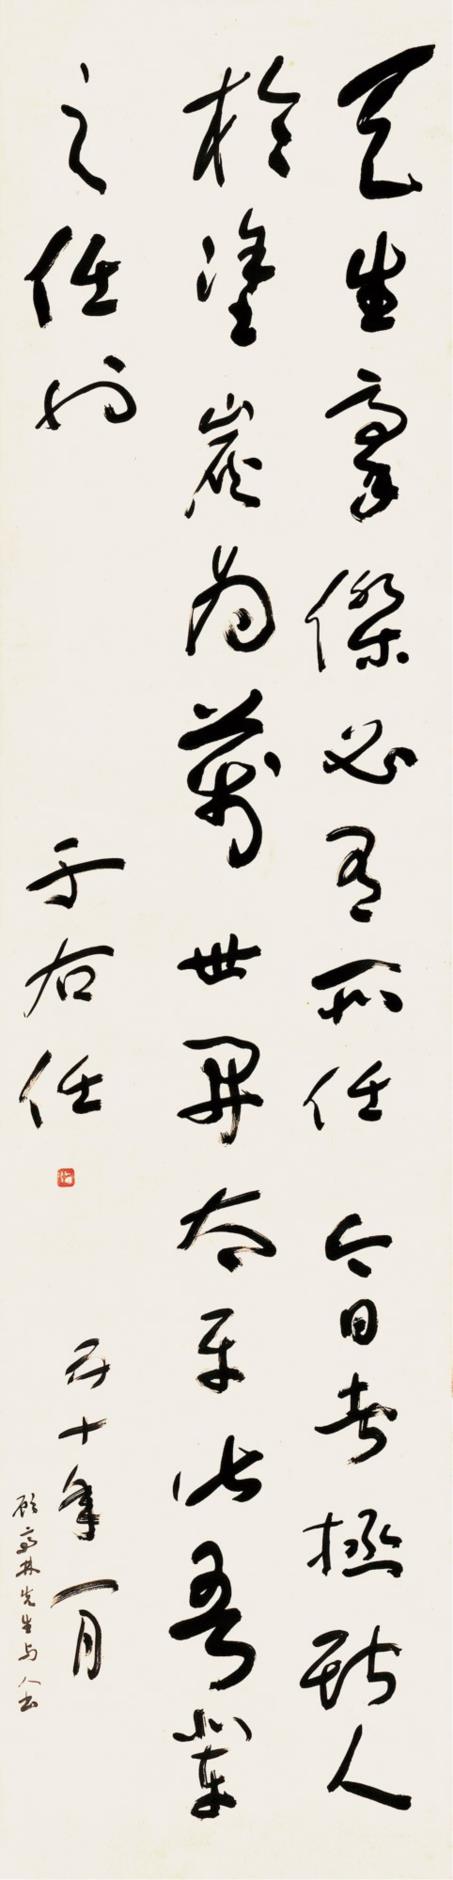 天生豪傑必有所任今日者拯斯人
於塗炭為萬世開太平此吾輩
之任也 于右任 五十年一月
顧亭林先生與人書